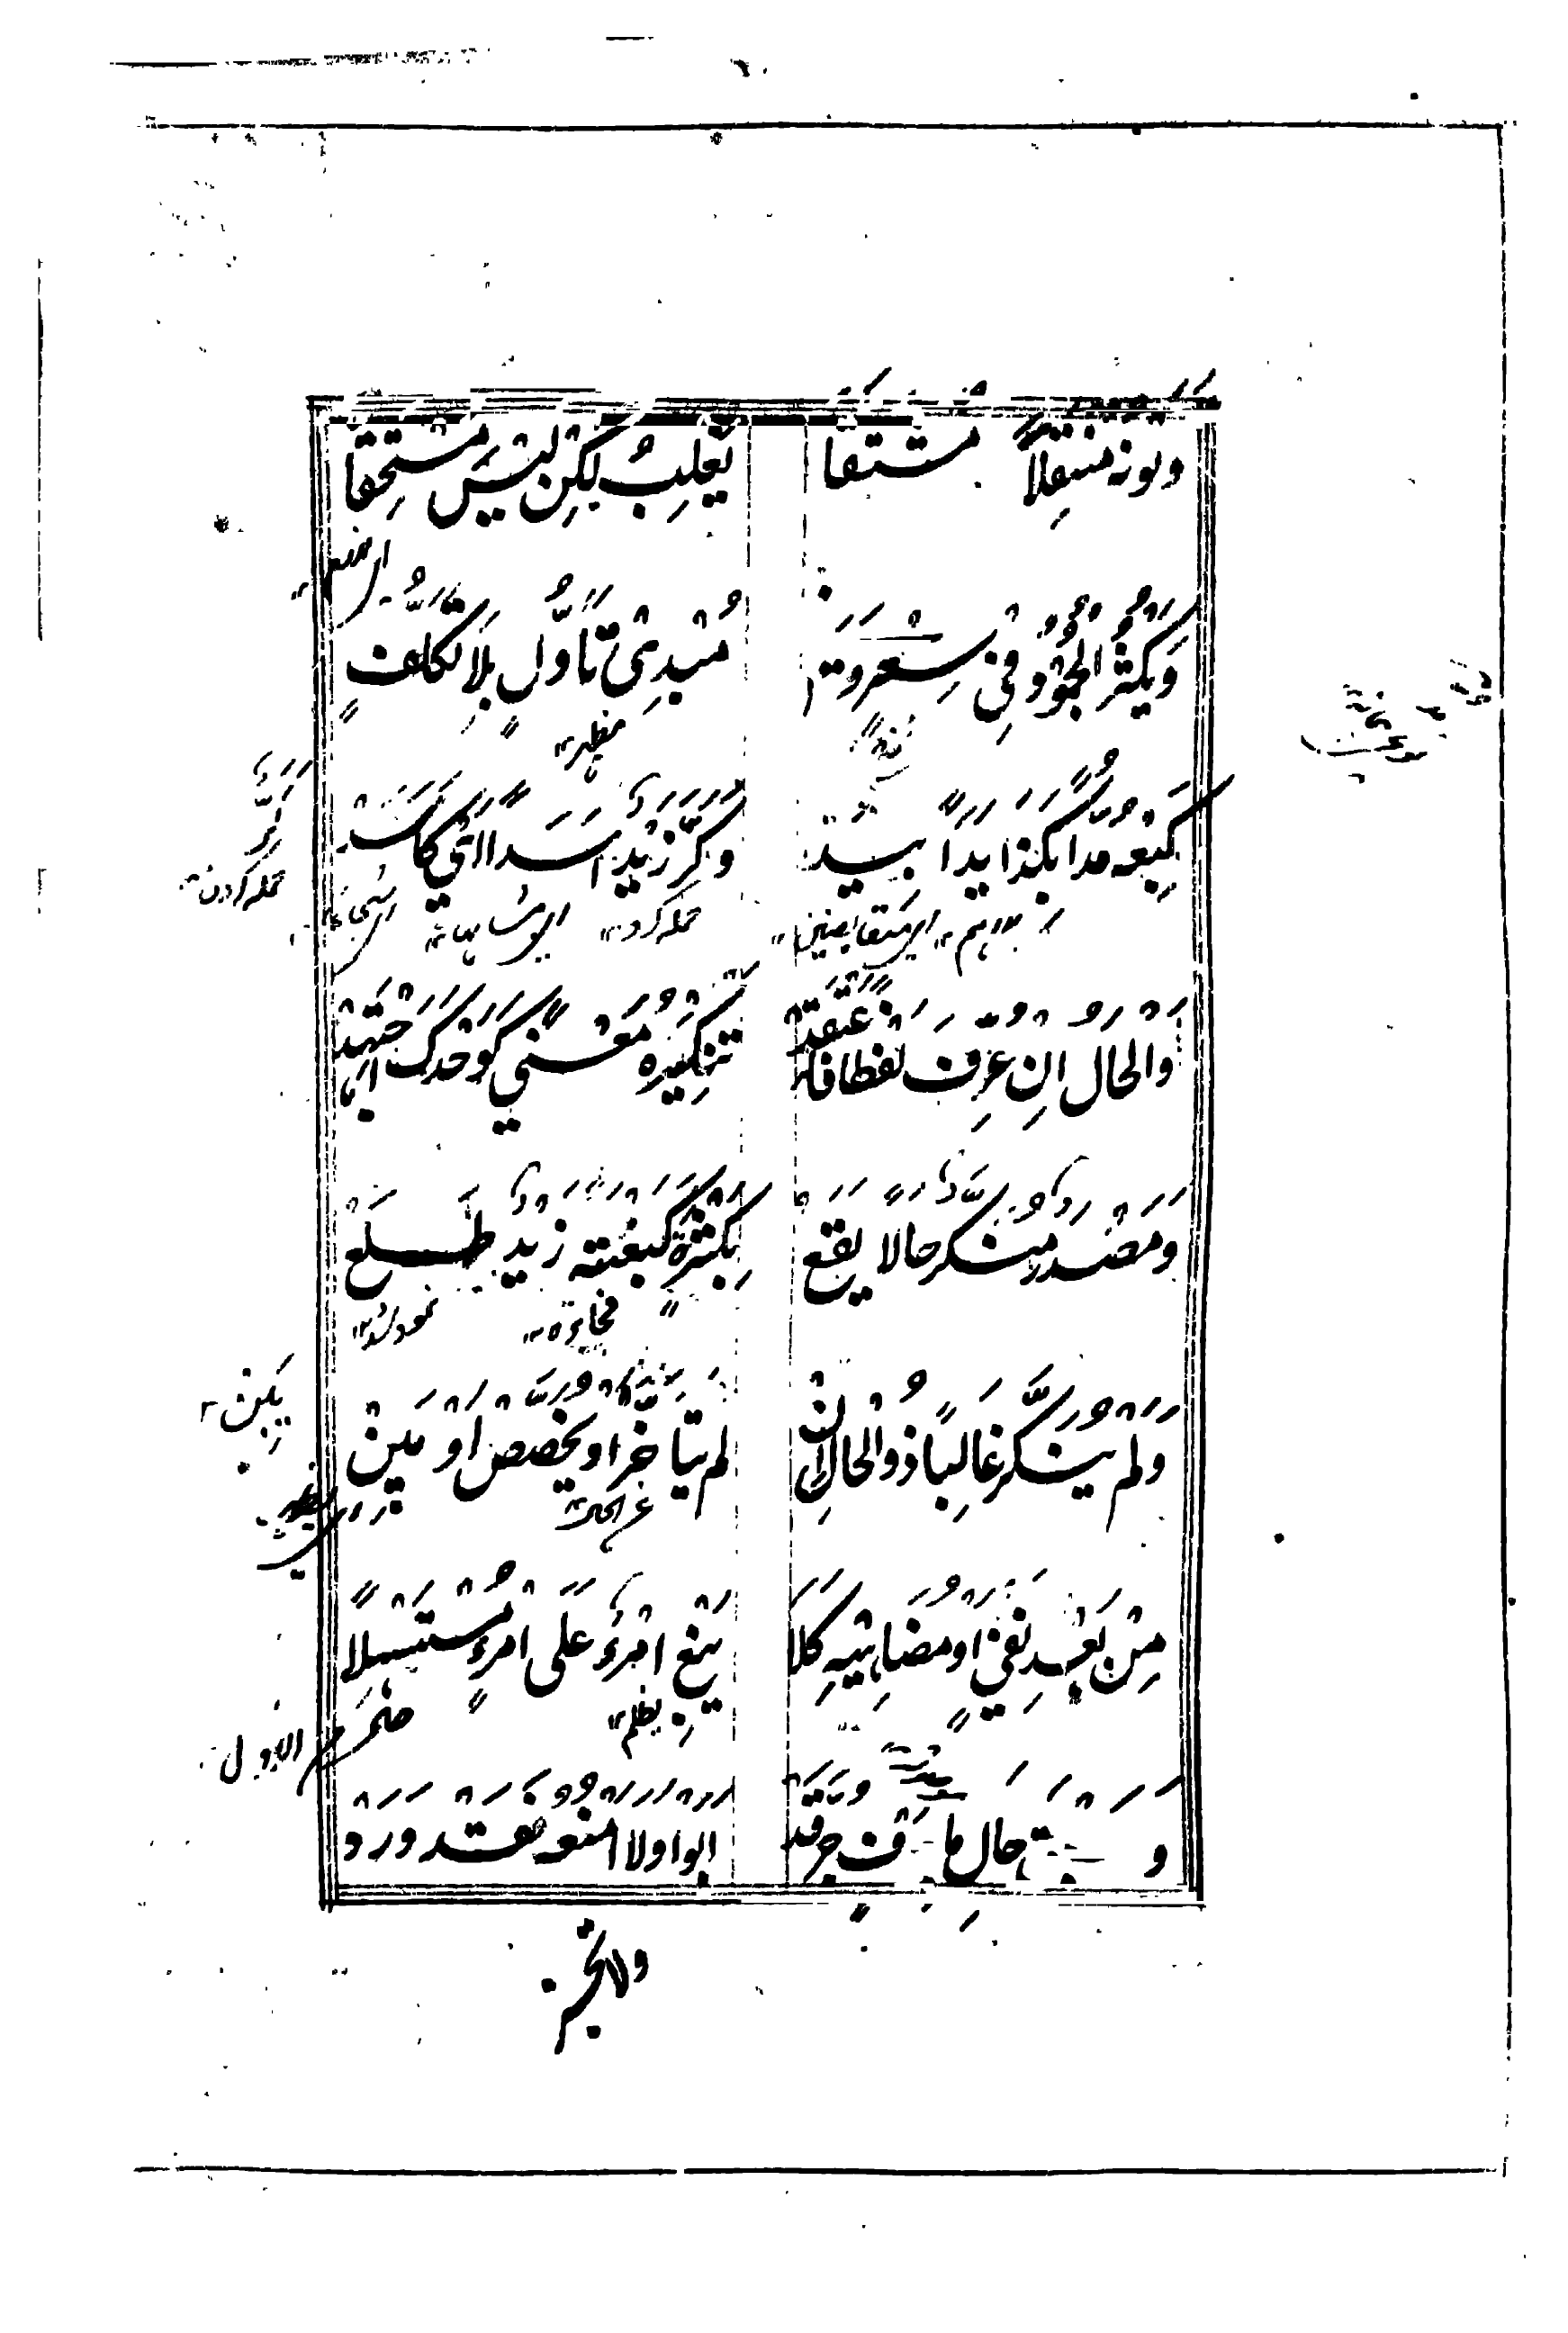 وكونه منتقلًا مشتقا يَغلِبُ لكِن ليْسَ مُسْتَحِقا
وَيَكْثُرُ الجُمُوْدُ فِيْ سِعْرٍ وَفِيْ مُبْدِىْ تَأَوُّلٍ بِلَا تَكَلُّفٍ
مظهر
كَبِعْهُ مُدًّا بِكَذَا يَدًا بِيَدْ وَكَرَّ زَيْدٌ اَسَدًا اَيْ كَاَسَدْ
كَرَّ
حمله كردن
حمله كرد
اى متقابضين
وَالْحَالُ اِنْ عُرِّفَ لَفْظًا فَاعْتَقِدْ تَنْكِيْرَهُ مَعْنًى كَوَحْدَكَ اجْتَهِدْ
وَمَصْدَرٌ مُنَكَّرٌ حَالًا يَقَعْ بِكَثْرَةٍ كَبَغْتَةً زَيْدٌ طَلَعْ
فجاءة
وَلَمْ يُنَكَّرْ غَالِبًا ذُو الْحَالِ اِنْ لَمْ يَتَأَخَّرْ اَوْ يُخَصَّصْ اَوْ يَبِنْ
يَبِنْ
اى يظهر
مِنْ بَعْدِ نَفْيٍ اَوْ مُضَاهِيْهِ كَلَا يَبْغِ امْرُؤٌ عَلَى امْرِئٍ مُسْتَسْهِلًا
يظلم
وَ حَالِ مَا بِحَرْفٍ جُرَّ قَدْ اَبَوْا وَلَا اَمْنَعُهُ فَقَدْ وَرَدْ
ولا تجز